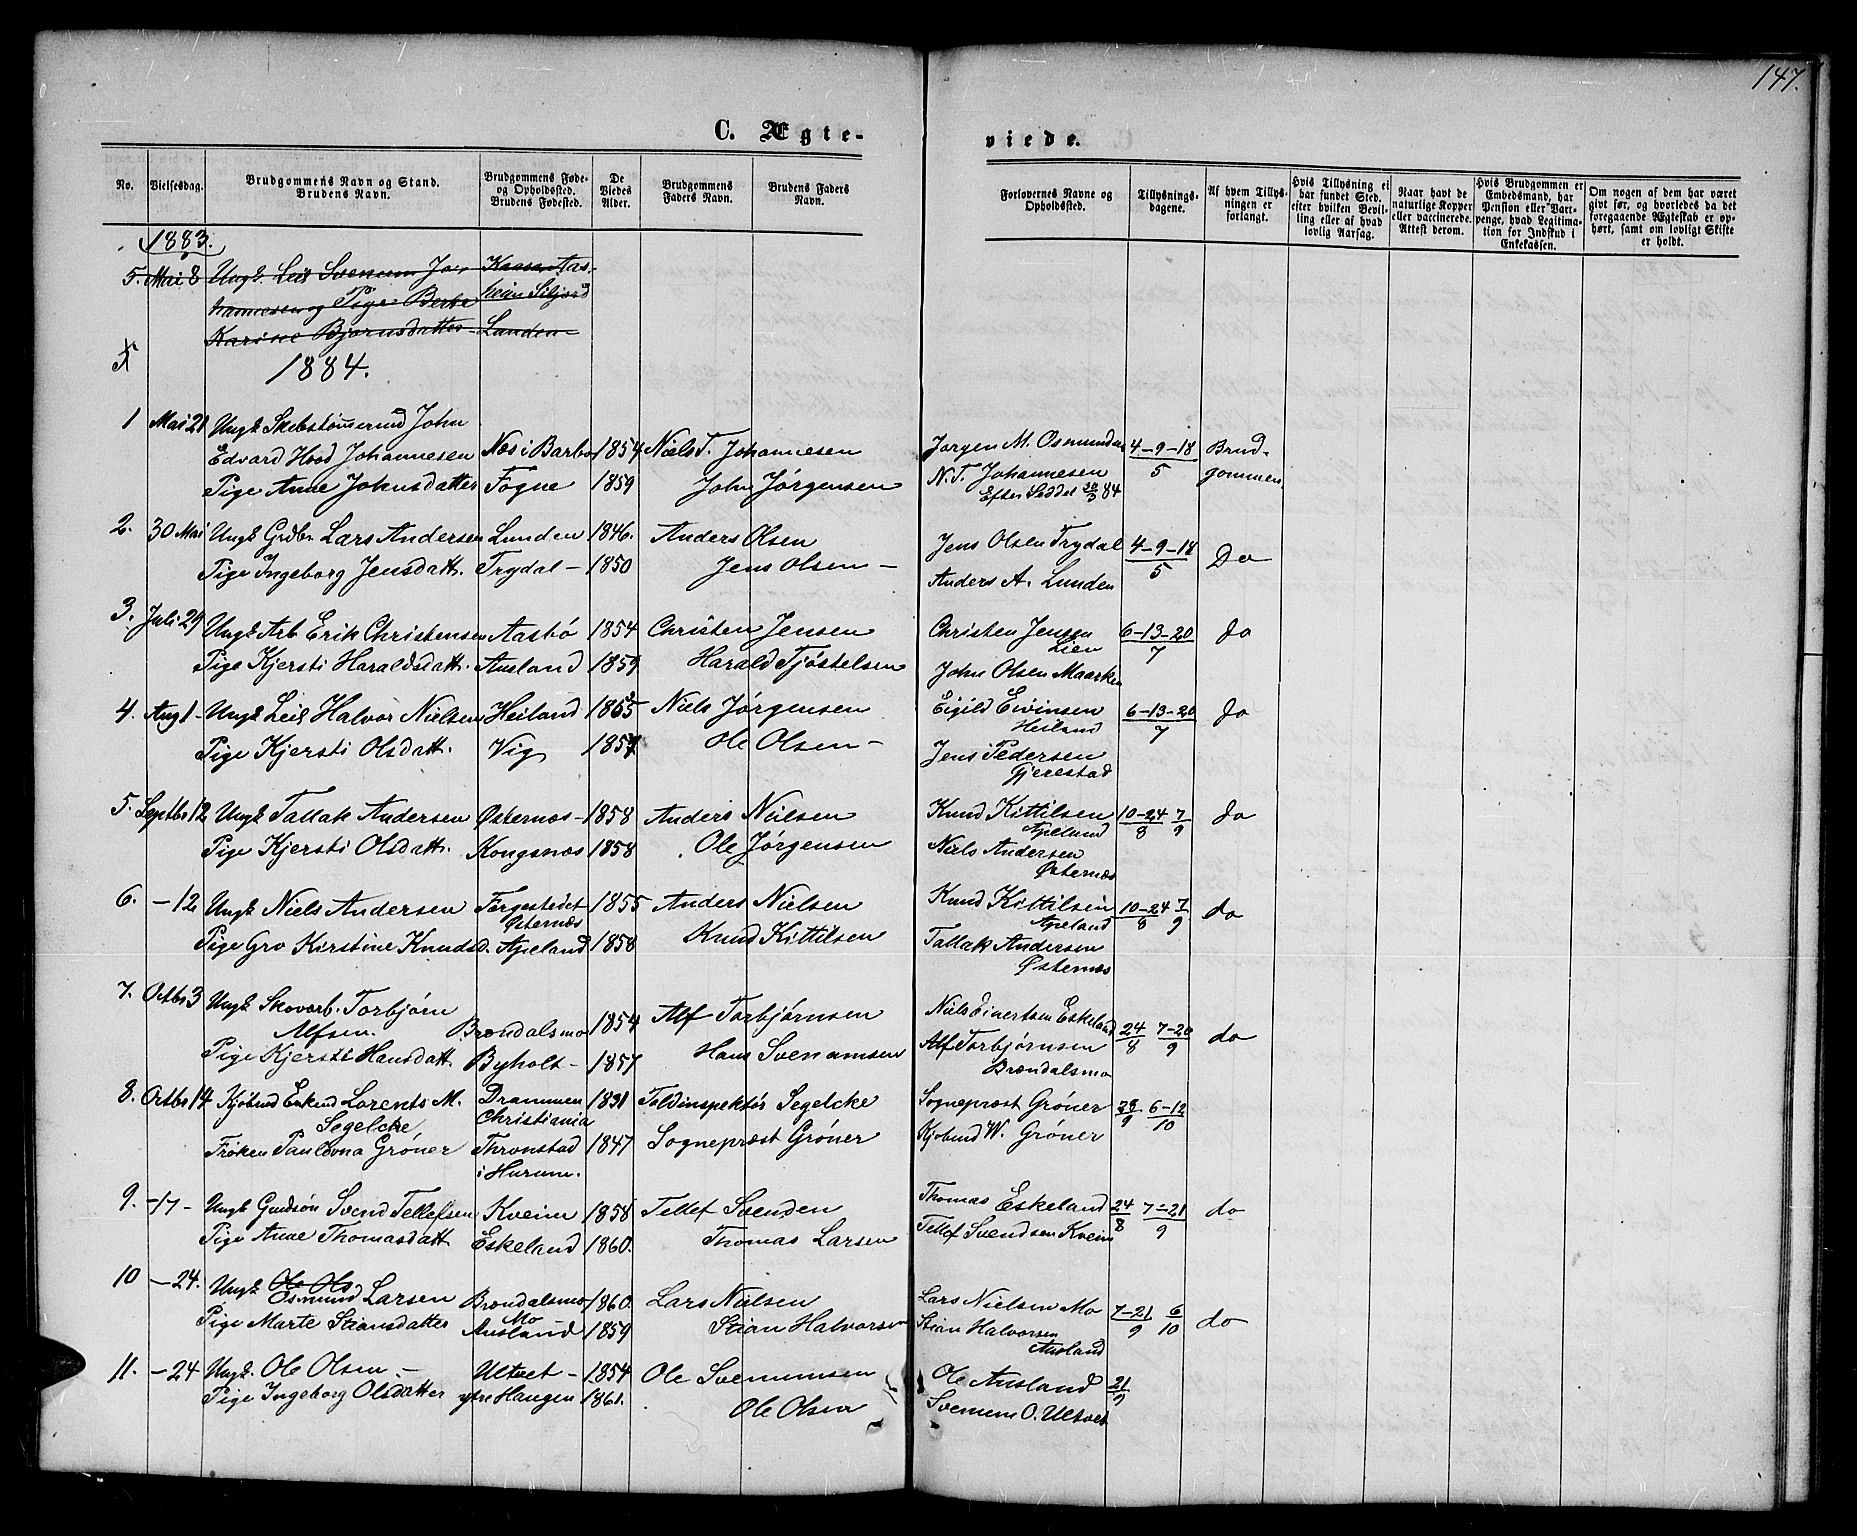 147.
C. Ægte-
viede.
No.
Vielsesdag.
Brudgommens Navn og Stand.
Brudens Navn.
Brudgommens Føde-
og Opholdssted.
Brudens Fødested.
De
Viedes
Alder.
Brudgommens
Faders Navn.
Brudens Faders
Navn.
Forlovernes Navne og
Opholdssted.
Tillysnings-
dagene.
Af hvem Tillys-
ningen er
forlangt.
Hvis Tillysning ei
har fundet Sted,
efter hvilken Bevil-
ling eller af hvad
lovlig Aarsag.
Naar havt de
naturlige Kopper
eller vaccinerede.
Attest derom.
Hvis Brudgommen er
Embedsmand, har
Pension eller Vart-
penge, hvad Legitima-
tion for Indskud i
Enkekassen.
Om nogen af dem har været
gift før, og hvorledes da det
foregaaende Ægteskab er op-
hørt, samt om lovligt Skifte
er holdt.
1883.
5. Mai 8 Ungk. Leil Svenum Jo-
hannesen og Pige Berte
Karine Bjørnsdatter Lunden
Siljord
5
1884.
1 Mai 21 Ungk Skibstømmermd John
Edvard Hood Johannesen Næs i Barbo 1854 Niels T. Johannesen Jørgen M. Osmundsen 4-9-18/5 Brud-
Pige Anne Johnsdatter Fogne 1859 John Jørgensen N. T. Johannesen gommen
Efter Seddel 30/3 84
2. 30 Mai Ungk Grdbr Lars Andersen Lunden 1846. Anders Olsen Jens Olsen Trydal 4-9-18/5 Do
Pige Ingeborg Jensdatt. Trydal - 1850 Jens Olsen - Anders A. Lunden
3. Juli 29 Ungk Arb Erik Christensen Aasbø 1854 Christen Jensen Christen Jensen Lien 6-13-20/7 do
Pige Kjersti Haraldsdatt. Ausland 1859 Harald Tjøstelsen John Olsen Maarken
4. Aug 1 - Ungk Leil Halvor Nielsen Heiland Niels Jørgensen Eigild Eivinsen Heiland 6-13-20/7 do
Pige Kjersti Olsdatt. Vig Ole Olsen - Jens Pedersen Gjerestad
5. Septbr 12 Ungk Tallak Andersen Østernæs - 1858 Anders Nielsen Knud Kittilsen Apeland 10-24/8 7/9 do
Pige Kjersti Olsdatt. Kongsnæs 1858 Ole Jørgensen Niels Andersen Østernæs
6. - 12 Ungk Niels Andersen Færgestedet Østernæs 1855 Anders Nielsen Knud Kittilsen Apeland 10-24/8 7/9 do
Pige Gro Kirstine Knudsd. Apeland 1858 Knud Kittilsen Tallak Andersen Østernæs
7. Octbr 3 Ungk Skovarb. Torbjørn
Alfsen. Brøndalsmo 1854 Alf Torbjørnsen Niels Einertsen Eskeland 24/8 7-20/9 do
Pige Kjersti Hansdatt. Byholt - 1857 Hans Svenumsen Alf Torbjørnsen Brøndalsmo
8. Octbr 14 Kjøbmd Enkemd Lorents M. Segelcke Drammen Christiania 1831 Toldinspektør Segelcke Sognepræst Grøner 28/9 6-12/10
Frøken Paulovna Grøner Thronstad i Hurum. 1847 Sognepræst Grøner Kjøbmd W. Grøner
9. -17 - Ungk Grdsøn Svend Tellefsen Kveim 1858 Tellef Svenden Thomas Eskeland 24/8 7-21/9 do
Pige Anne Thomasdatt Eskeland 1860. Thomas Larsen Tellef Svendsen Kveim
10 - 24. Ungk Ole Ols
Osmund Larsen Brøndalsmo Mo 1860. Lars Nielsen Lars Nielsen Mo 7-21/9 6/10 do
Pige Marte Stiansdatter Ausland 1859 Stian Halvorsen Stian Halvorsen Ausland
11. - 24 Ungk. Ole Olsen - Ultvet - 1854 Ole Svenumsen Ole Ausland 21/9
Pige Ingeborg Olsdatter ytre Haugen 1861. Ole Olsen Svenum O. Ultvet